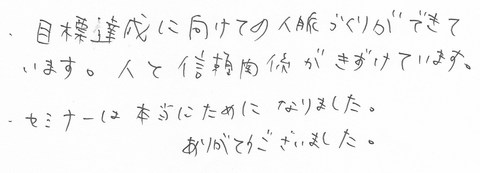 ・目標達成に向けての人脈づくりができて
います。人と信頼関係がきずけています。
・セミナーは本当にためになりました。
ありがとうございました。